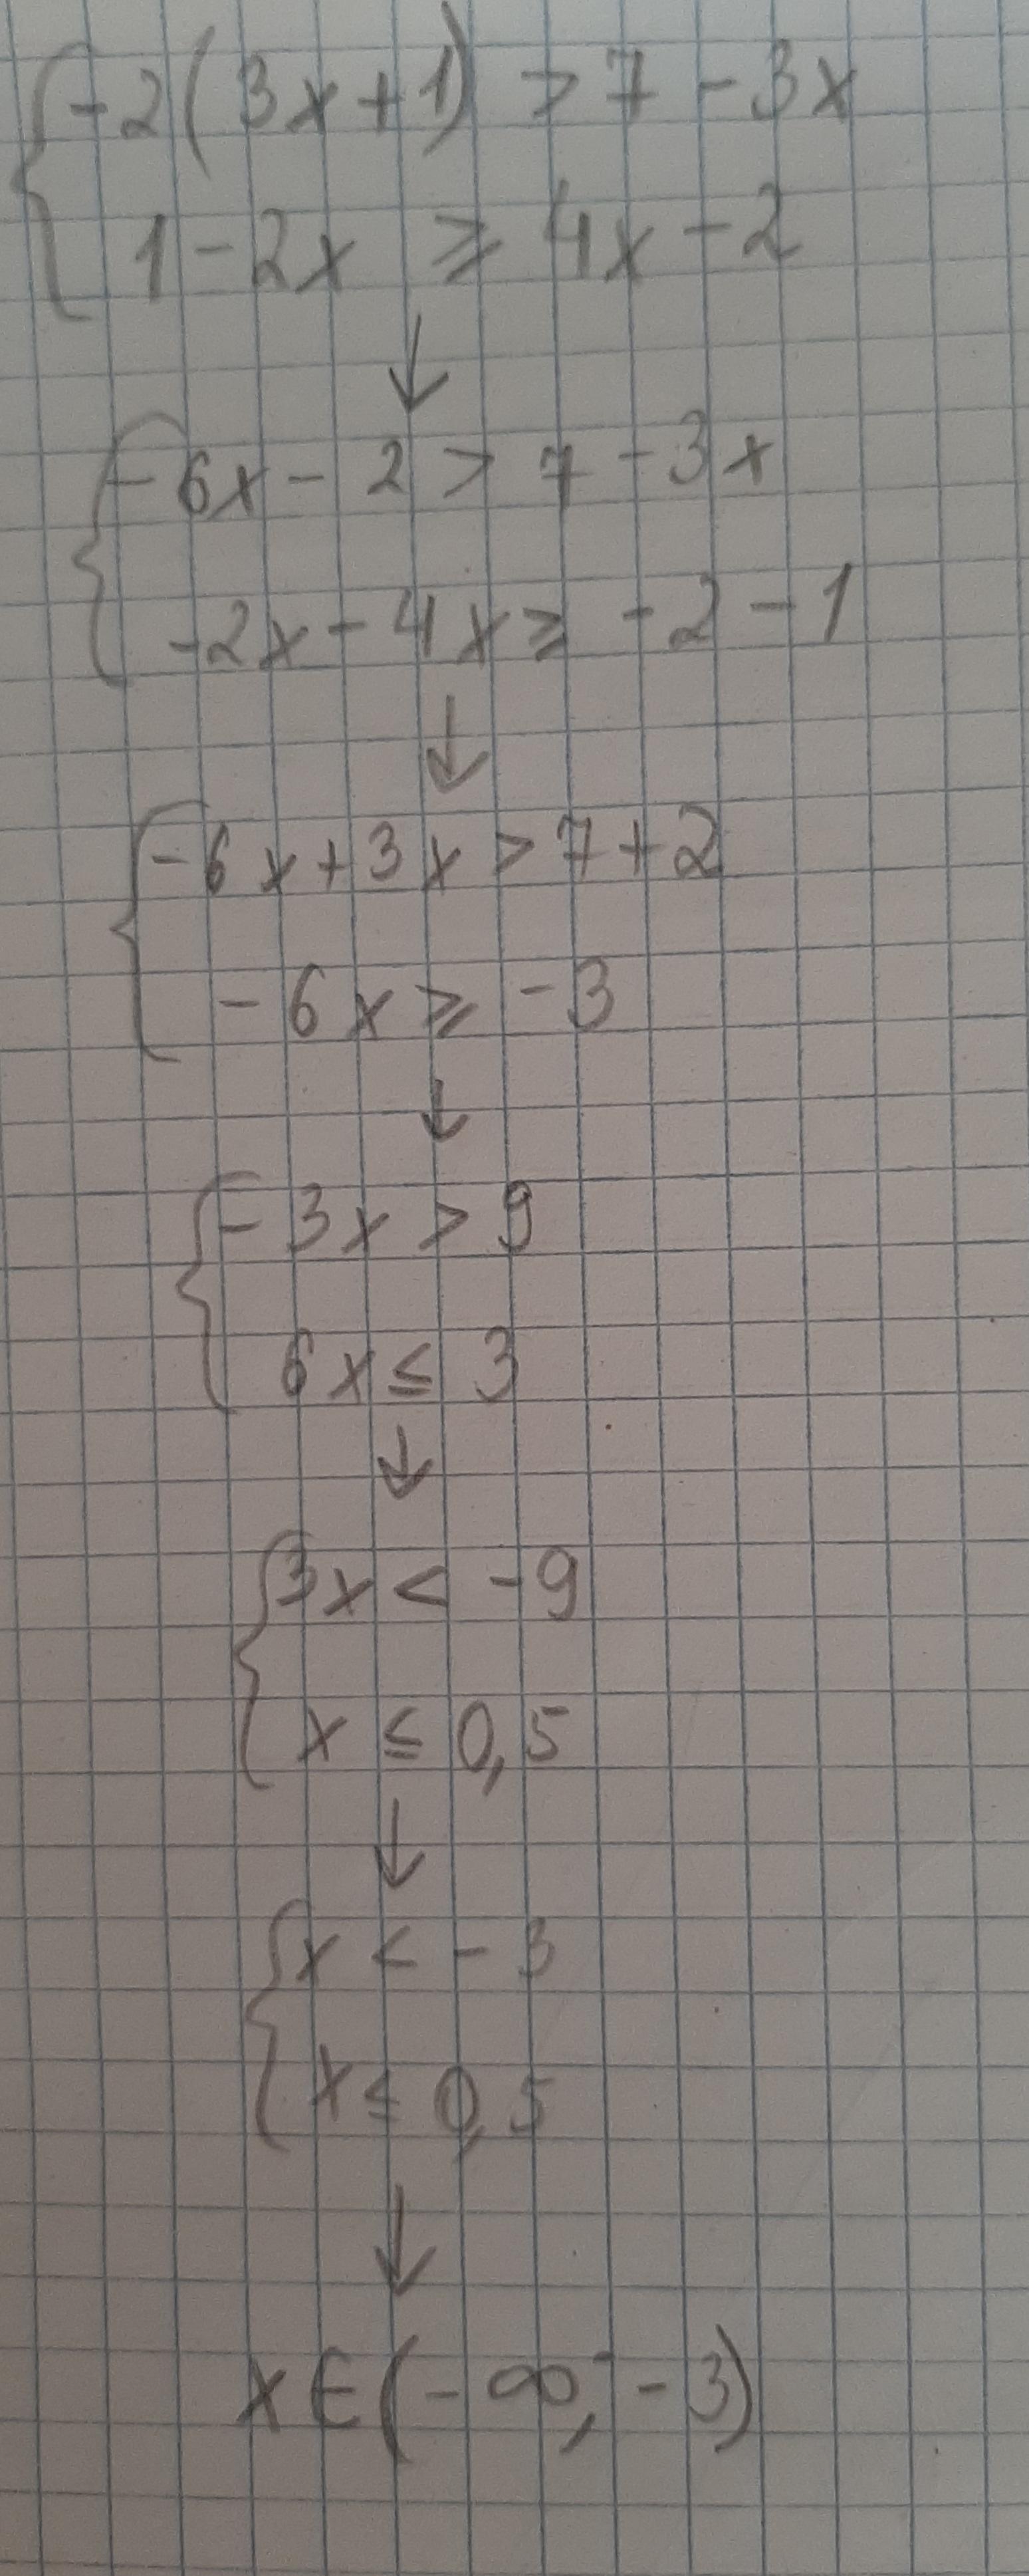 -2(3x+1) > 7-3x
1-2x ≥ 4x-2
↓
-6x-2 > 7-3x
-2x-4x ≥ -2-1
↓
-6x+3x > 7+2
-6x ≥ -3
↓
-3x > 9
6x ≤ 3
↓
3x < -9
x ≤ 0,5
↓
x < -3
x ≤ 0,5
↓
x∈(-∞; -3)